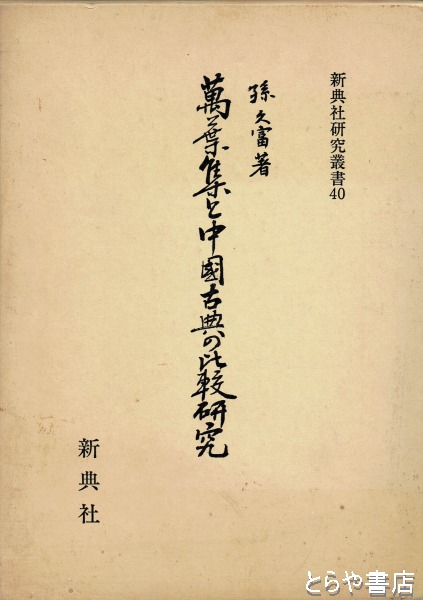 新典社研究叢書40
孫久富著
萬葉集と中國古典の比較研究
新典社
とらや書店